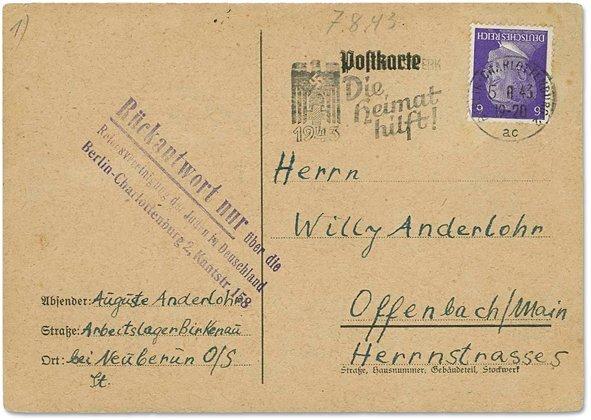 1)
7.8.43
Postkarte
Die
Heimat
hilft!
1943
DEUTSCHES REICH
6 6
CHARLOTTENBURG
43
ac
Rückantwort nur über die
Reichsvereinigung der Juden in Deutschland
Berlin-Charlottenburg 2, Kantstr. 158
Herrn
Willy Anderlohr
Offenbach/Main
Herrnstrasse
Straße, Hausnummer, Gebäudeteil, Stockwerk
Absender: Auguste Anderlohr
Straße: Arbeitslager Birkenau
Ort: bei Neuberun O/S